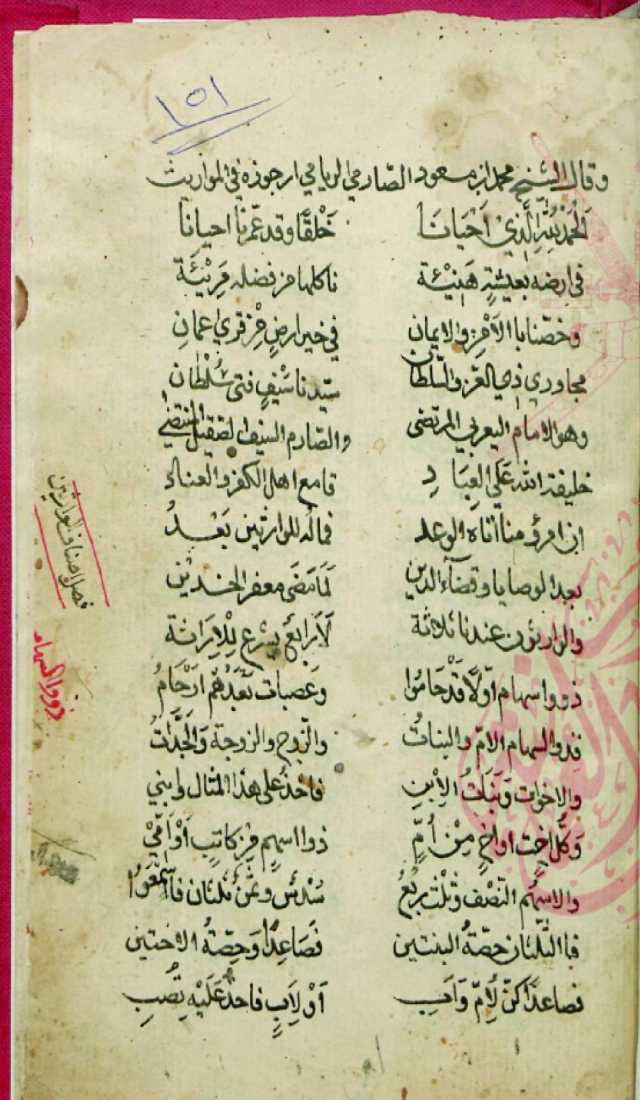 ١٥١
وقال الشيخ محمد ابن مسعود الصارمي الريامي ارجوزه في المواريث
الحمد لله الذي احيانا خلقا وقد عمرنا احيانا
في ارضه بعيشة هنيئة ناكلها من فضله مريئة
وخصنا با الامن والايمان في خير ارض من قرى عمان
مجاوري ذي العز والسلطان سيدنا سيف فتى سلطان
وهو الامام اليعربي المرتضى والصارم السيف الصقيل المنتضى
خليفة الله على العباد قامع اهل الكفر والعناد
ان امرؤ منا اتاه الوعد فماله للوارثين بعد
بعد الوصايا وقضاء الدين لما مضى معفر الخدين
والوارثون عندنا ثلاثة لا رابع يسرع للوراثة
ذووا سهام اولا قد حاموا وعصبات بعدهم ارحام
فذو السهام الام والبنات والزوج والزوجة والجدات
والاخوات وبنات الابن فاحذ على هذا المثال وابني
وكل اخت او اخ من ام ذوا اسهم من كاتب او امي
والاسهم النصف وثلث ربع سدس وثمن ثلثان فاسمعوا
فبا الثلثان حصة البنتين فصاعدا وحصة الاختين
فصاعدا كن لام واب او لاب فاحذ عليه تصب
فصل اصناف الوارثين
ذووا السهام